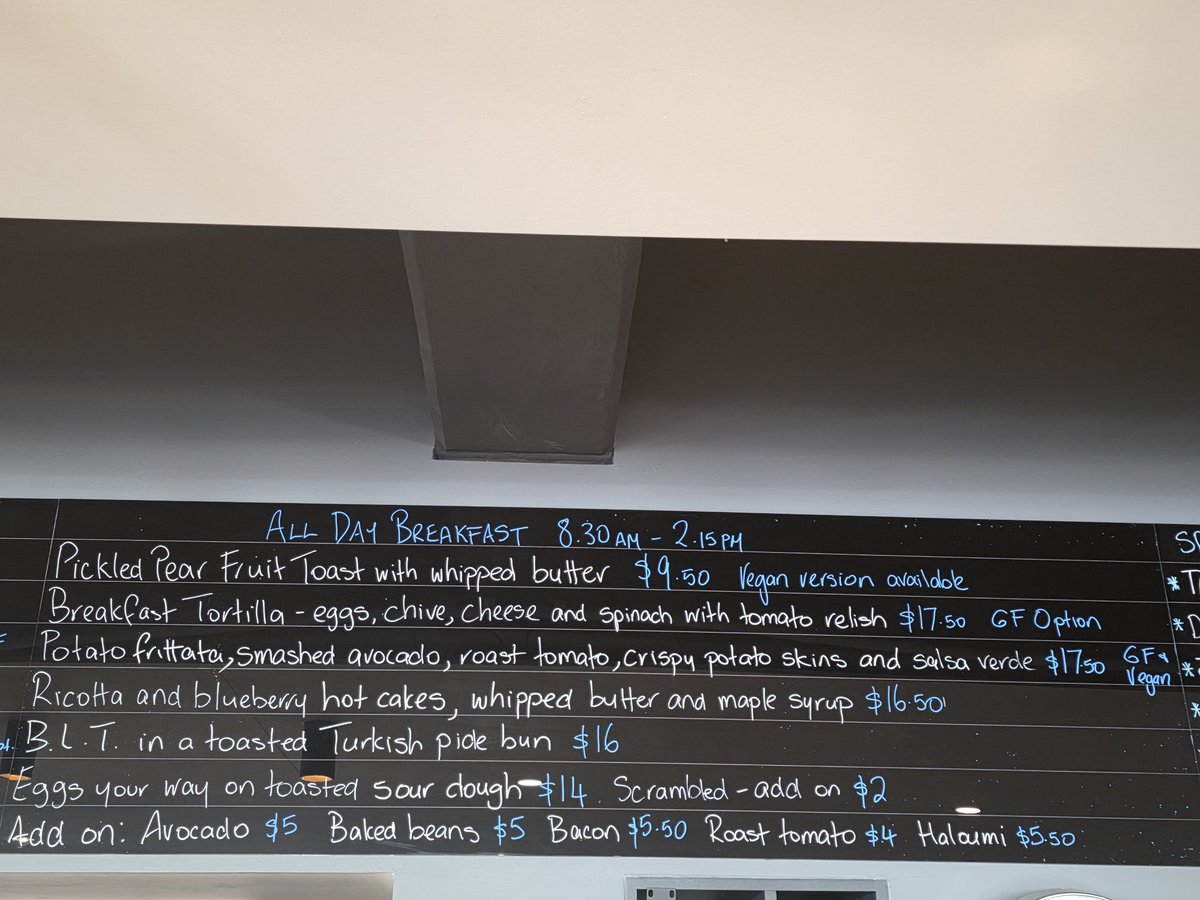 ALL DAY BREAKFAST 8.30AM - 2.15PM
Pickled Pear Fruit Toast with whipped butter $9.50 Vegan version available
Breakfast Tortilla - eggs, chive, cheese and spinach with tomato relish $17.50 GF Option
Potato frittata, smashed avocado, roast tomato, crispy potato skins and salsa verde $17.50 GF & Vegan
Ricotta and blueberry hot cakes, whipped butter and maple syrup $16.50
B.L.T. in a toasted Turkish pide bun $16
Eggs your way on toasted sour dough $14 Scrambled - add on $2
Add on: Avocado $5 Baked beans $5 Bacon $5.50 Roast tomato $4 Haloumi $5.50